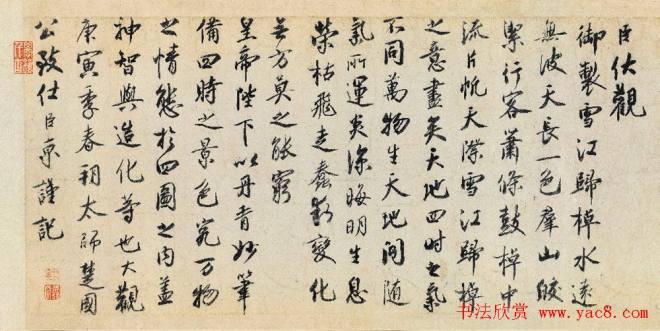 臣伏觀
御製雪江歸棹水遠
無波天長一色群山皎
潔行客蕭條鼓棹中
流片帆天際雪江歸棹
之意盡矣天地四時之氣
不同萬物生天地間隨
氣所運炎涼晦明生息
榮枯飛走蠢動變化
無方莫之能窮
皇帝陛下以丹青妙筆
備四時之景色究萬物
之情態於四圖之內蓋
神智與造化等也大觀
庚寅季春朔太師楚國
公致仕臣京謹記
书法欣赏 www.yac8.com